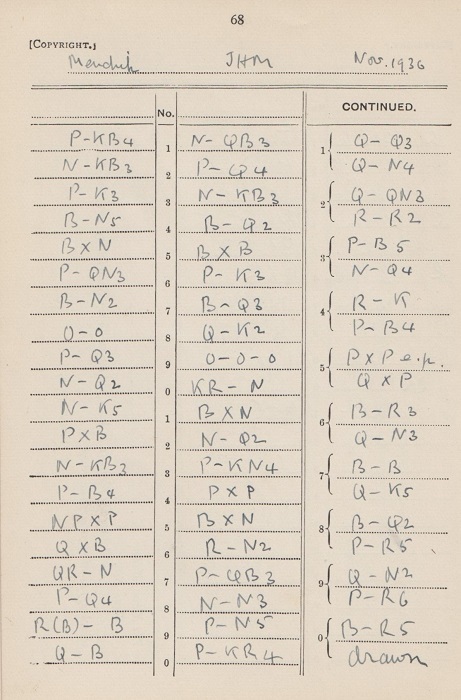 68
[COPYRIGHT.]
Mendrik JHM Nov. 1936
No. CONTINUED.
P-KB4 1 N-QB3
N-KB3 2 P-Q4
P-K3 3 N-KB3
B-N5 4 B-Q2
B×N 5 B×B
P-QN3 6 P-K3
B-N2 7 B-Q3
0-0 8 Q-K2
P-Q3 9 0-0-0
N-Q2 0 KR-N
N-K5 1 B×N
P×B 2 N-Q2
N-KB3 3 P-KN4
P-B4 4 P×P
NP×P 5 B×N
Q×B 6 R-N2
QR-N 7 P-QB3
P-Q4 8 N-N3
R(B)-B 9 P-N5
Q-B 0 P-KR4
1 Q-Q3
Q-N4
2 Q-QN3
R-R2
3 P-B5
N-Q4
4 R-K
P-B4
5 P×P e.p.
Q×P
6 B-R3
Q-N3
7 B-B
Q-K5
8 B-Q2
P-R5
9 Q-N2
P-R6
0 B-R5
drawn